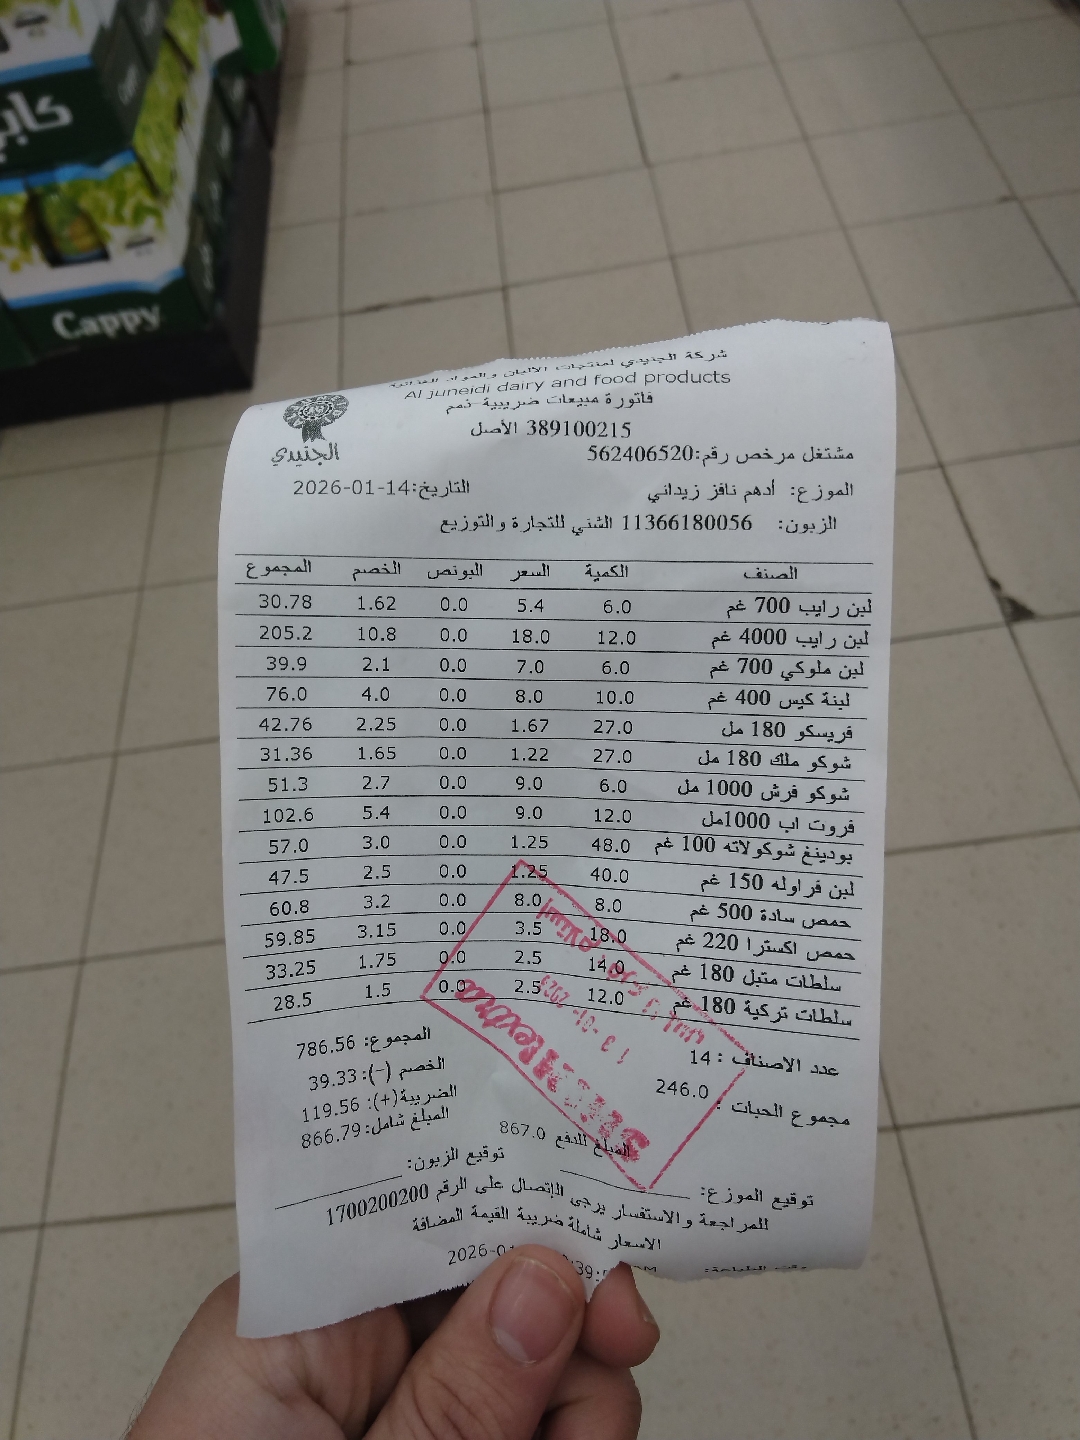 كابي
Cappy
شركة الجنيدي لمنتجات الألبان والمواد الغذائية
Al Juneidi dairy and food products
فاتورة مبيعات ضريبية-ذمم
389100215 الأصل
الجنيدي
مشتغل مرخص رقم:562406520
الموزع: أدهم نافز زيداني التاريخ:2026-01-14
الزبون: 11366180056 الشني للتجارة والتوزيع
الصنف الكمية السعر البونص الخصم المجموع
لبن رايب 700 غم 6.0 5.4 0.0 1.62 30.78
لبن رايب 4000 غم 12.0 18.0 0.0 10.8 205.2
لبن ملوكي 700 غم 6.0 7.0 0.0 2.1 39.9
لبنة كيس 400 غم 10.0 8.0 0.0 4.0 76.0
فريسكو 180 مل 27.0 1.67 0.0 2.25 42.76
شوكو ملك 180 مل 27.0 1.22 0.0 1.65 31.36
شوكو فرش 1000 مل 6.0 9.0 0.0 2.7 51.3
فروت اب 1000مل 12.0 9.0 0.0 5.4 102.6
بودينغ شوكولاته 100 غم 48.0 1.25 0.0 3.0 57.0
لبن فراوله 150 غم 40.0 1.25 0.0 2.5 47.5
حمص سادة 500 غم 8.0 8.0 0.0 3.2 60.8
حمص اكسترا 220 غم 18.0 3.5 0.0 3.15 59.85
سلطات متبل 180 غم 14.0 2.5 0.0 1.75 33.25
سلطات تركية 180 غم 12.0 2.5 0.0 1.5 28.5
عدد الاصناف : 14 المجموع: 786.56
مجموع الحبات : 246.0 الخصم (-): 39.33
الضريبة(+): 119.56
المبلغ شامل: 866.79
المبلغ للدفع 867.0
توقيع الموزع: توقيع الزبون:
للمراجعة والاستفسار يرجى الإتصال على الرقم 1700200200
الاسعار شاملة ضريبة القيمة المضافة